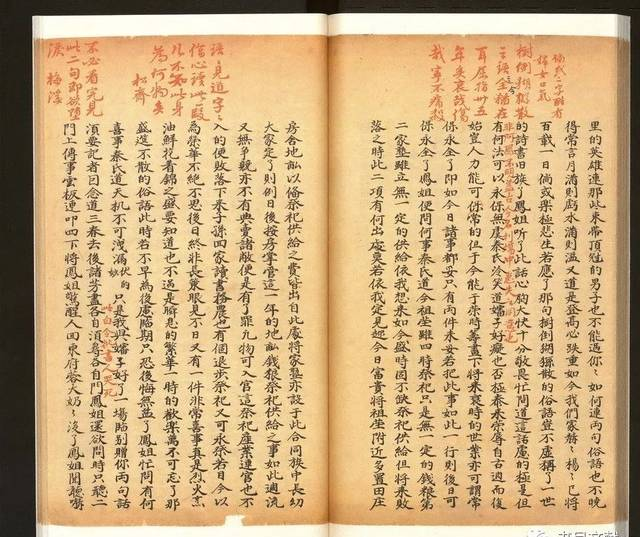 稱我二字酷肖
婦女口氣
樹倒猢猻散
之語今猶在
耳屈指卅五
年矣哀哉傷
哉寧不痛殺
里的英雄連那些束帶頂冠的男子也不能過你〃如何連兩句俗語也不曉
得常言月滿則虧水滿則溢又道是登高必跌重如今我們家赫〃揚〃已將
百載一日倘或樂極悲生若應了那句樹倒猢猻散的俗語豈不虛稱了一世
的詩書旧族了鳳姐听了此話心胸大快十分敬畏忙問道這話慮的極是但
有何法可以永保無虞秦氏冷笑道嬸子好癡也否極泰來榮辱自古週而復
始豈人力能可保常的但于今能于榮時籌畫下將來衰時的世業亦可謂常
保永全了即如今日諸事都妥只有兩件未妥若把此事如此一行則後日可
保永全了鳳姐便問何事秦氏道今祖塋雖四時祭祀只是無一定的錢粮第
二家塾雖立無一定的供給依我想來如今盛時固不缺祭祀供給但將來敗
落之時此二項有何出處莫若依我定見趁今日富貴將祖塋附近多置田庄
語〃見道字〃
傷心讀此一段
几不知此身
為何物矣
松齋
不必看完見
此二句即欲堕
淚 梅溪
房舍地畝以俻祭祀供給之費皆出自此處將家塾亦設于此合同族中長幼
大家定了則例日後按房掌管這一年的地畝錢粮祭祀供給之事如此週流
又無爭競亦不有典賣諸弊便是有了罪凢物可入官這祭祀產業連官也不
入的便敗落下來子孫回家讀書務農也有個退步祭祀又可永継若目今以
為榮華不絕不思後日終非長策眼見不日又有一件非常喜事真是烈火烹
油鮮花着錦之盛要知道也不過是瞬息的繁華一時的歡樂萬不可忘了那
盛筵不散的俗語此時若不早為後慮臨期只恐後悔無益了鳳姐忙問有何
喜事秦氏道天机不可洩漏 伏的妙 只是我與嬸子好了一場臨别贈你兩句話
須要記者因念道三春去後諸芳盡各自須尋各自門 此句令批書人哭死 鳳姐還欲問時只聽二
門上傳事雲板連叩四下將鳳姐驚醒人回東府蓉大奶〃沒了鳳姐聞聽嚇